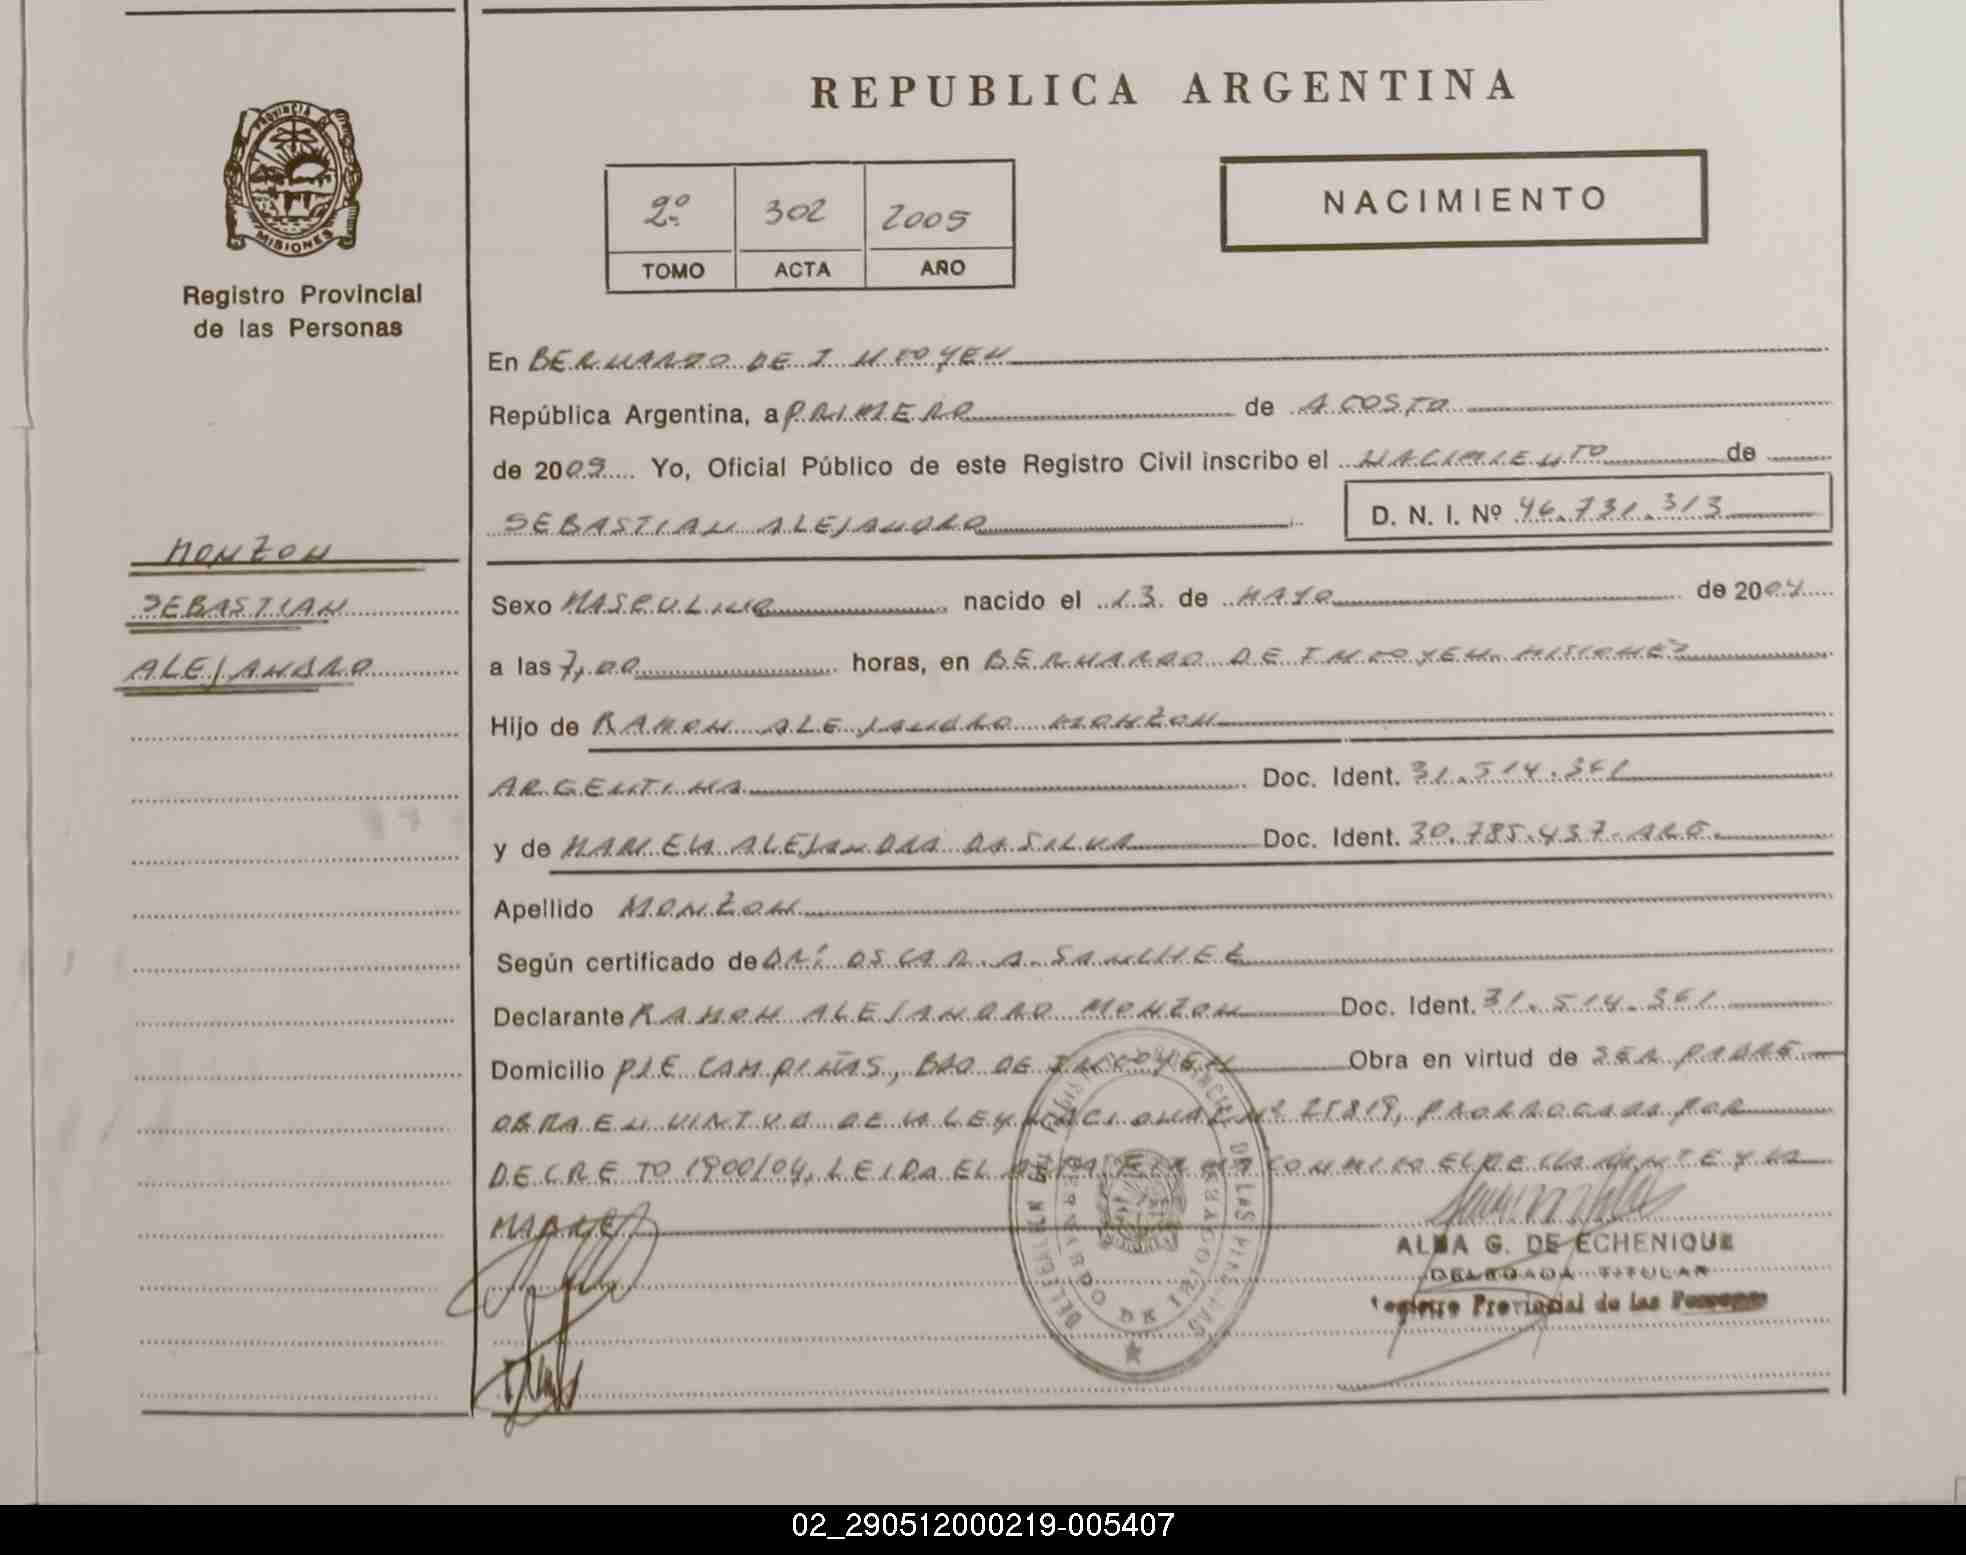 REPUBLICA ARGENTINA
PROVINCIA DE
MISIONES
Registro Provincial
de las Personas
2º 302 2005
TOMO ACTA AÑO
NACIMIENTO
En BERNARDO DE IRIGOYEN
República Argentina, a PRIMERO de AGOSTO
de 2005 Yo, Oficial Público de este Registro Civil inscribo el NACIMIENTO de
SEBASTIAN ALEJANDRO D. N. I. Nº 46.731.313
MONZON
SEBASTIAN
ALEJANDRO
Sexo MASCULINO nacido el 13 de MAYO de 2004
a las 7,00 horas, en BERNARDO DE IRIGOYEN. MISIONES
Hijo de RAMON ALEJANDRO MONZON
ARGENTINA Doc. Ident. 31.514.361
y de MARIELA ALEJANDRA DA SILVA Doc. Ident. 30.785.437-ARG.
Apellido MONZON
Según certificado de DR: OSCAR A. SANCHEZ
Declarante RAMON ALEJANDRO MONZON Doc. Ident. 31.514.361
Domicilio PJE CAMPIÑAS, BDO DE IRIGOYEN Obra en virtud de SER PADRE
OBRA EN VIRTUD DE LA LEY NACIONAL Nº 25819, PRORROGADA POR
DECRETO 1900/04, LEIDA EL ACTA FIRMA CONMIGO EL DECLARANTE Y LA
MADRE
ALBA G. DE ECHENIQUE
DELEGADA TITULAR
Registro Provincial de las Personas
02_290512000219-005407